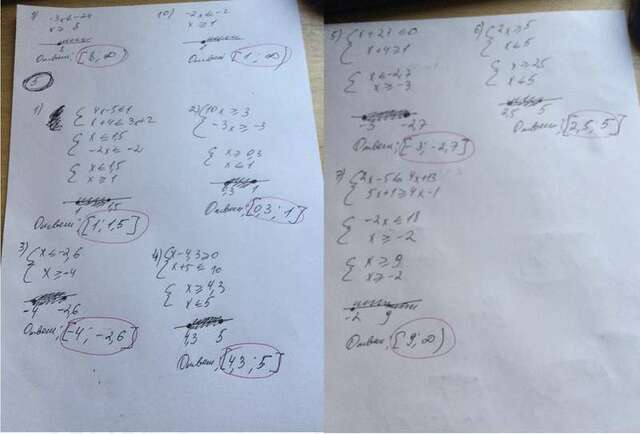 9) -3x ≤ -24
x ≥ 8
Ответ: [8; ∞)
10) -2x ≤ -2
x ≥ 1
Ответ: [1; ∞)
5
1) { 4x-5 ≤ 1
x+4 ≤ 3x+2
{ x ≤ 1,5
-2x ≤ -2
{ x ≤ 1,5
x ≥ 1
1 1,5
Ответ: [1; 1,5]
2) { 10x ≥ 3
-3x ≥ -3
x ≥ 0,3
x ≤ 1
0,3 1
Ответ: [0,3; 1]
3) { x ≤ -2,6
{ x ≥ -4
-4 -2,6
Ответ: [-4; -2,6]
4) { x-4,3 ≥ 0
x+5 ≤ 10
{ x ≥ 4,3
x ≤ 5
4,3 5
Ответ: [4,3; 5]
5) { x+2,7 ≤ 0
x+4 ≥ 1
{ x ≤ -2,7
x ≥ -3
-3 -2,7
Ответ: [-3; -2,7]
6) { 2x ≥ 5
x ≤ 5
{ x ≥ 2,5
x ≤ 5
2,5 5
Ответ: [2,5; 5]
7) { 2x-5 ≤ 4x+13
5x+1 ≥ 4x-1
{ -2x ≤ 18
x ≥ -2
{ x ≥ 9
x ≥ -2
-2 9
Ответ: [9; ∞)